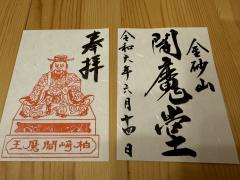 金砂山
閻魔堂
令和六年六月十四日
奉拝
柏崎閻魔王